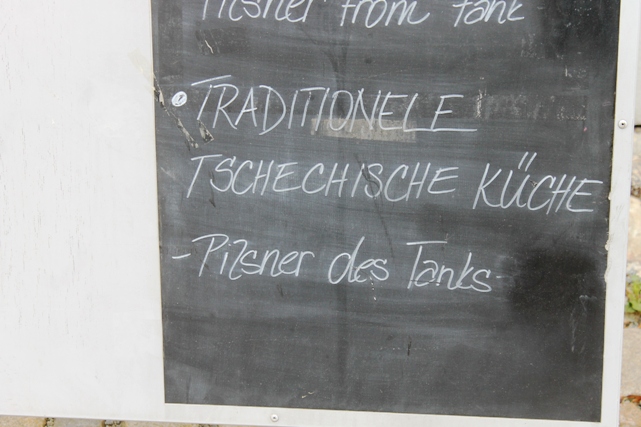 Pilsner from tank
• TRADITIONELE
TSCHECHISCHE KÜCHE
- Pilsner des Tanks -